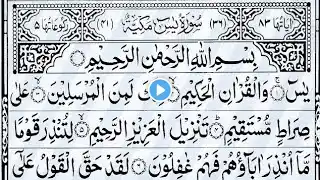 اٰیَاتُهَا ٨٣ (٣٦) سُوْرَةُ یٰسٓ مَكِّیَّةٌ (٤١) رُكُوْعَاتُهَا ٥
بِسْمِ اللهِ الرَّحْمٰنِ الرَّحِیْمِ
یٰسٓ ۚ وَالْقُرْاٰنِ الْحَكِیْمِ ۙ لَمِنَ الْمُرْسَلِیْنَ ۙ عَلٰی
صِرَاطٍ مُّسْتَقِیْمٍ ؕ تَنْزِیْلَ الْعَزِیْزِ الرَّحِیْمِ ۙ لِتُنْذِرَ قَوْمًا
مَّاۤ اُنْذِرَ اٰبَآؤُهُمْ فَهُمْ غٰفِلُوْنَ لَقَدْ حَقَّ الْقَوْلُ عَلٰۤی